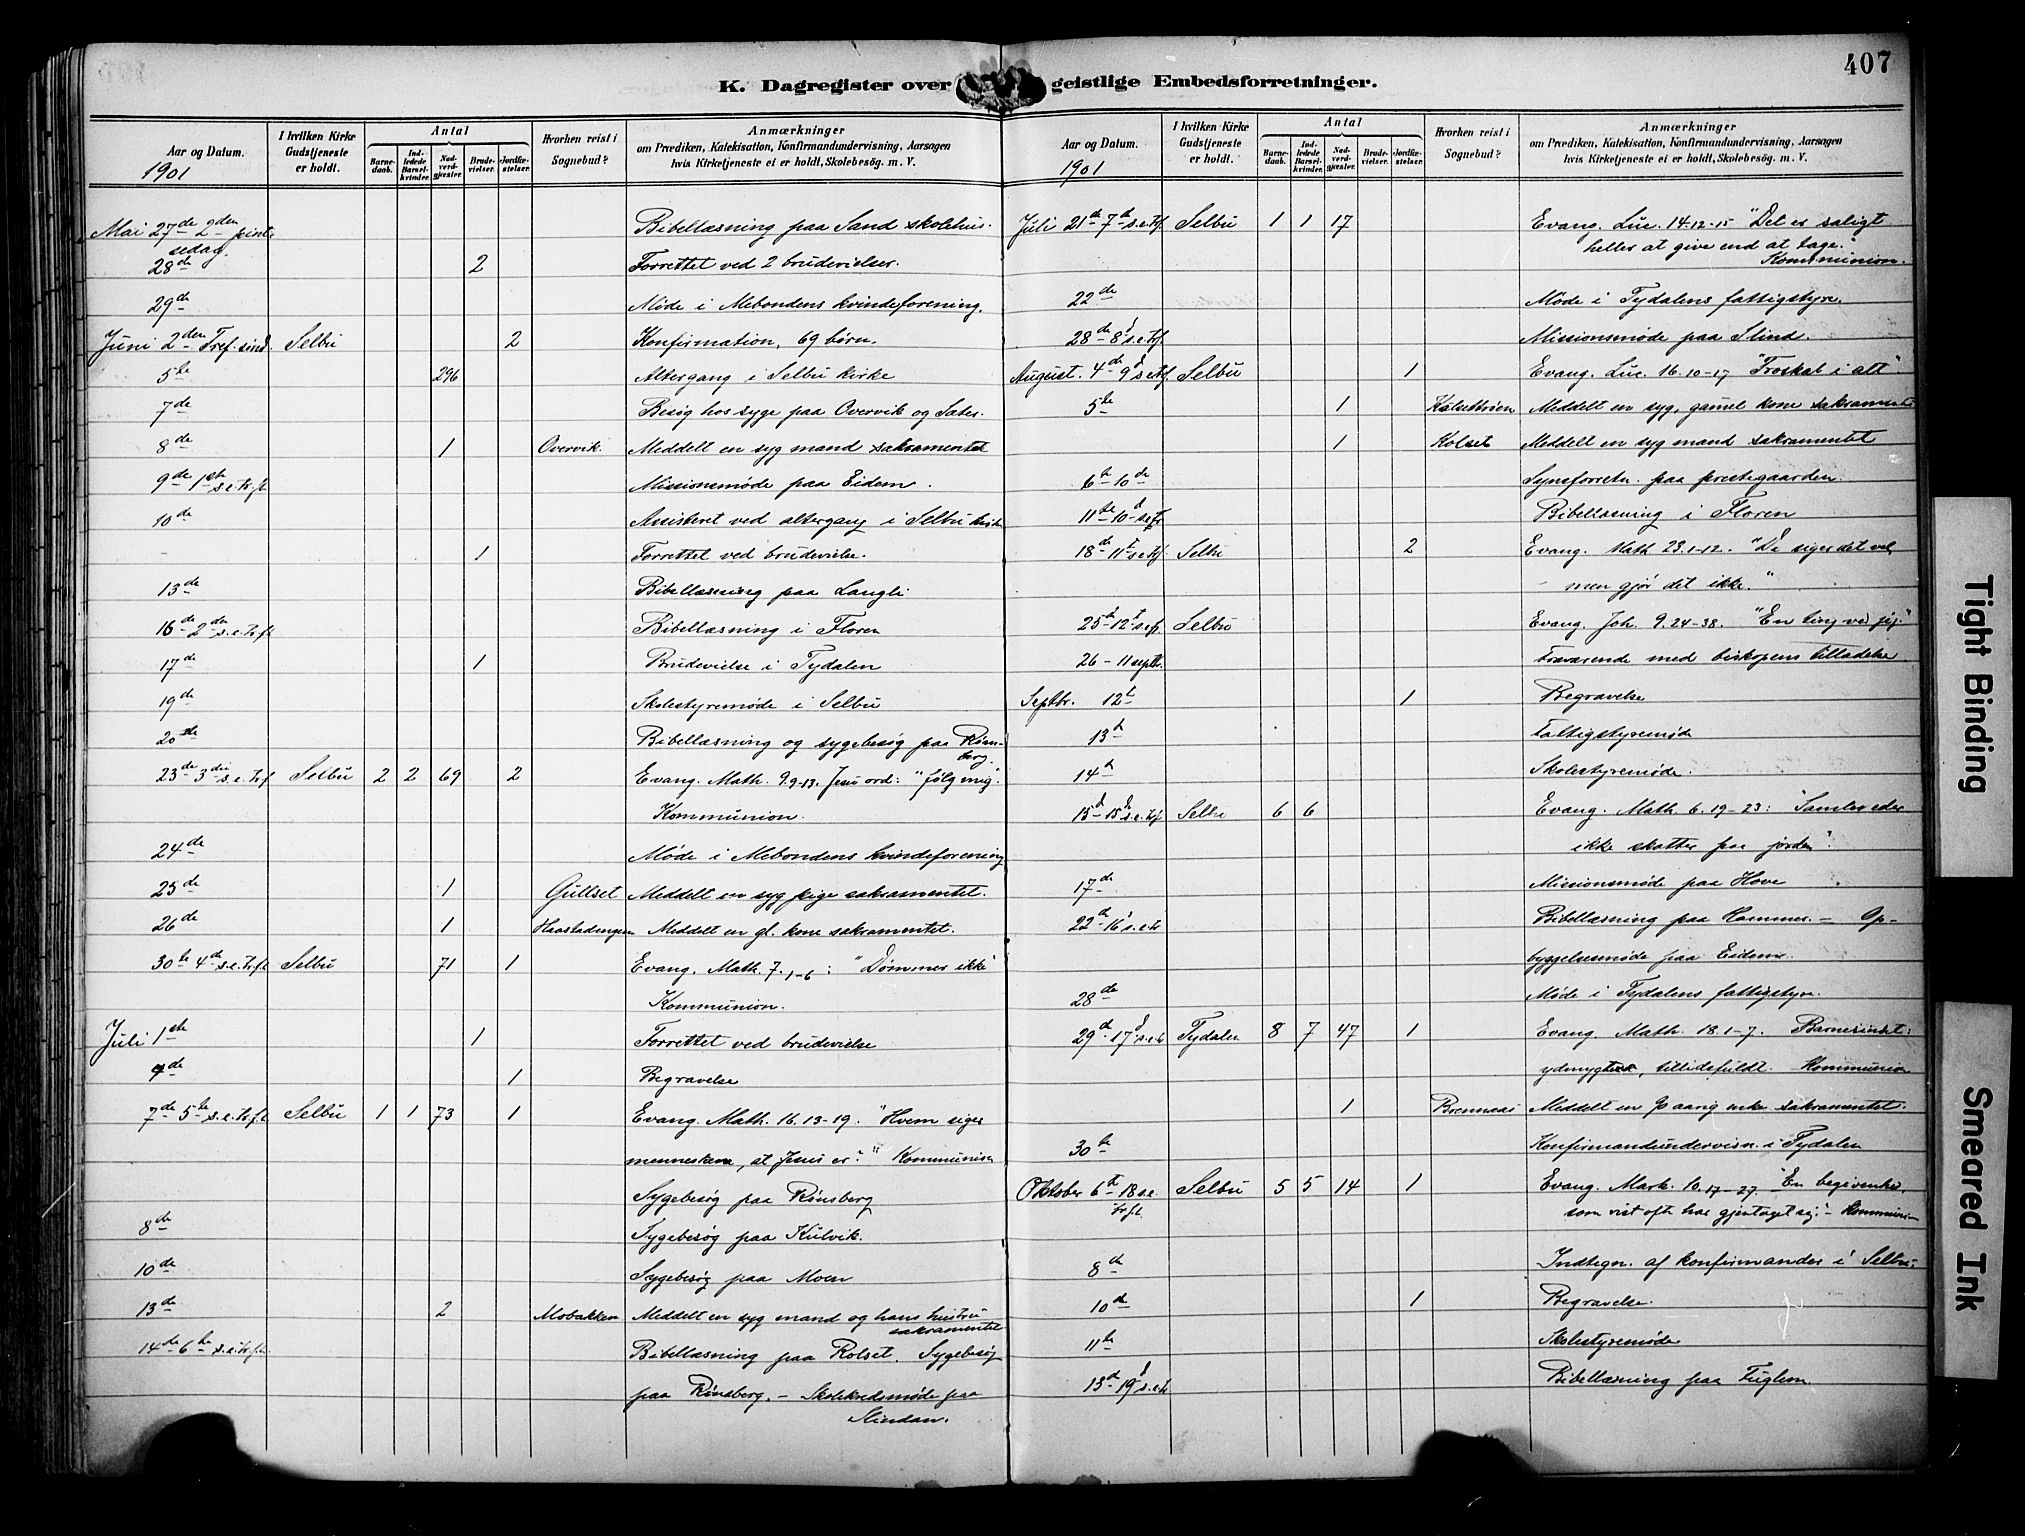 407
K. Dagregister over geistlige Embedsforretninger.
Aar og Datum. I hvilken Kirke Gudstjeneste er holdt. Antal Barnedaab. Indledede Barselkvinder. Nadverdgjæster. Brudevielser. Jordfæstelser. Hvorhen reist i Sognebud? Anmærkninger om Prædiken, Katekisation, Konfirmandundervisning, Aarsagen hvis Kirketjeneste ei er holdt, Skolebesøg. m. V.
1901
Mai 27de 2den pint- Bibellæsning paa Sand skolehus.
sedag
28de 2 Forrettet ved 2 brudevielser.
29de Møde i Mebondens kvindeforening.
Juni 2den Tref. sønd. Selbu 2 Konfirmation, 69 børn.
5te 296 Altergang i Selbu kirke
7de Besøg hos syge paa Overvik og Sater.
8de 1 Overvik. Meddelt en syg mand sakramentet
9de 1ste s.e.tr.ft. Missionsmøde paa Eidem.
10de Assisteret ved altergang i Selbu kirke
1 Forrettet ved brudevielse.
13de Bibellæsning paa Langli
16de 2den s.e.tr.ft Bibellæsning i Floren
17de 1 Brudevielse i Tydalen
19de Skolestyremøde i Selbu
20de Bibellæsning og sygebesøg paa Røns-
berg.
23de 3die s.e.tr.f Selbu 2 2 69 2 Evang. Math. 9.9-13. Jesu ord: "følg mig".
Kommunion.
24de Møde i Mebondens kvindeforening
25de 1 Gullset Meddelt en syg pige sakramentet.
26de 1 Meddelt en gl. kone sakramentet.
30te 4de s.e.tr.ft Selbu 71 1 Evang. Math. 7.1-6: "Dømmer ikke"
Kommunion.
Juli 1ste 1 Forrettet ved brudevielse
4de 1 Begravelse
7de 5te s.e.tr.ft Selbu 1 1 73 1 Evang. Math. 16.13-19. "Hvem siger
menneskene, at Jesus er?" Kommunion
Sygebesøg paa Rønsberg
8de Sygebesøg paa Kulvik.
10de Sygebesøg paa Moen
13de 2 Mobakken Meddelt en syg mand og hans hustru
sakramentet
14de 6te s.e.tr.ft. Bibellæsning paa Rolset. Sygebesøg
paa Rønsberg. – Skolekredsmøde paa
Slindan.
Aar og Datum. I hvilken Kirke Gudstjeneste er holdt. Antal Barnedaab. Indledede Barselkvinder. Nadverdgjæster. Brudevielser. Jordfæstelser. Hvorhen reist i Sognebud? Anmærkninger om Prædiken, Katekisation, Konfirmandundervisning, Aarsagen hvis Kirketjeneste ei er holdt, Skolebesøg. m. V.
1901
Juli 21de 7de s.e.tr.f. Selbu 1 1 17 Evang. Luc. 14.12-15 "Det er saligt
heller at give end at tage."
Kommunion.
22de Møde i Tydalens fattigstyre.
28de 8d s.e.tr.f Missionsmøde paa Slind.
August. 4de 9d s.e.tr.f. Selbu 1 Evang. Luc. 16.10-17 "Troskab i alt"
5te 1 Meddelt en syg, gamel kone sakramentet
1 Kolset Meddelt en syg mand sakramentet
6te-10de Synsforretn. paa prestegaarden.
11te 10d s.e.tr. Bibellæsning i Floren
18de 11te s.e.tr.f. Selbu 2 Evang. Math 23.1-12. "De siger det vel,
men gjør det ikke."
25t 12t s.e.tr. Selbu Evang. Joh. 9.24-38. "En ting ved jeg"
26 – 11 septb. Fraværende med biskopens tilladelse
Septbr. 12t 1 Begravelse
13d Fattigstyremøde
14d Skolestyremøde.
15d 15d s.e.tr.f. Selbu 6 6 Evang. Math. 6.19-23: "Samler eder
ikke skatter paa jorden".
17de Missionsmøde paa Hove
22d 16d s.e.tr Bibellæsning paa Hammer. – Op-
byggelsesmøde paa Eidem.
28de Møde i Tydalens fattigstyre.
29d 17d s.e.tr Tydalen 8 7 47 1 Evang. Math. 18.1-7. Barnesindet:
tillidsfuldt. Kommunion
1 Meddelt en 90 aarig enke sakramentet.
30te Konfirmandundervisn. i Tydalen
Oktober 6d 18 s.e. Selbu 5 5 14 1 Evang. Mark. 10.17-27. "En begivenhed,
tr.ft. som vist ofte har gjentaget sig." – Kommunion
8de Indtegn. af konfirmander i Selbu.
10d 1 Begravelse.
11te Skolestyremøde
13d 19d s.e.tr Bibellæsning paa Fuglem
Tight Binding
Smeared Ink